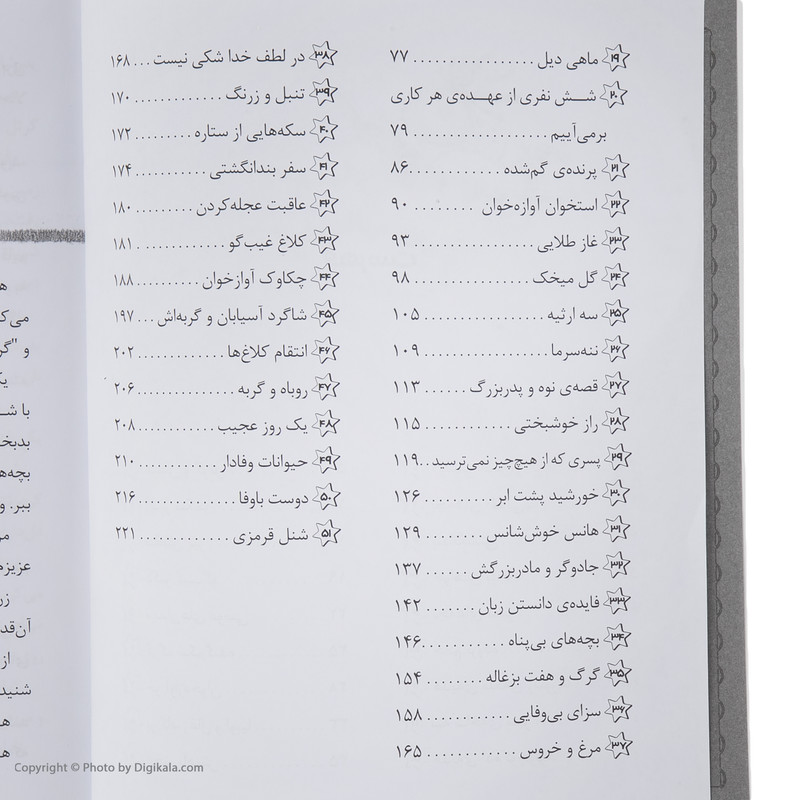 ۱۹ ماهی دیل ................. ۷۷
۲۰ شــش نفری از عهــده‌ی هر کاری
برمی‌آییم ................... ۷۹
۲۱ پرنده‌ی گم‌شده ............. ۸۶
۲۲ استخوان آوازه‌خوان ........ ۹۰
۲۳ غاز طلایی ................. ۹۳
۲۴ گل میخک ................ ۹۸
۲۵ سه ارثیه ................. ۱۰۵
۲۶ ننه‌سرما .................. ۱۰۹
۲۷ قصه‌ی نوه و پدربزرگ ...... ۱۱۳
۲۸ راز خوشبختی ............ ۱۱۵
۲۹ پسری که از هیچ‌چیز نمی‌ترسید .. ۱۱۹
۳۰ خورشید پشت ابر .......... ۱۲۶
۳۱ هانس خوش‌شانس ......... ۱۲۹
۳۲ جادوگر و مادربزرگش ...... ۱۳۷
۳۳ فایده‌ی دانستن زبان ....... ۱۴۲
۳۴ بچه‌های بی‌پناه ............ ۱۴۶
۳۵ گرگ و هفت بزغاله ........ ۱۵۴
۳۶ سزای بی‌وفایی ............ ۱۵۸
۳۷ مرغ و خروس ............. ۱۶۵
۳۸ در لطف خدا شکی نیست ... ۱۶۸
۳۹ تنبل و زرنگ ............. ۱۷۰
۴۰ سکه‌هایی از ستاره ......... ۱۷۲
۴۱ سفر بندانگشتی ........... ۱۷۴
۴۲ عاقبت عجله‌کردن ......... ۱۸۰
۴۳ کلاغ غیب‌گو ............. ۱۸۱
۴۴ چکاوک آوازخوان .......... ۱۸۸
۴۵ شاگرد آسیابان و گربه‌اش ... ۱۹۷
۴۶ انتقام کلاغ‌ها ............. ۲۰۲
۴۷ روباه و گربه .............. ۲۰۶
۴۸ یک روز عجیب ............ ۲۰۸
۴۹ حیوانات وفادار ............ ۲۱۰
۵۰ دوست باوفا .............. ۲۱۶
۵۱ شنل قرمزی ............. ۲۲۱
می‌ک
و "گر
با شــ
بدبخ
بچه‌ه
ببر. و
عزیزم
آن‌قد
از
شنید
Copyright © Photo by Digikala.com